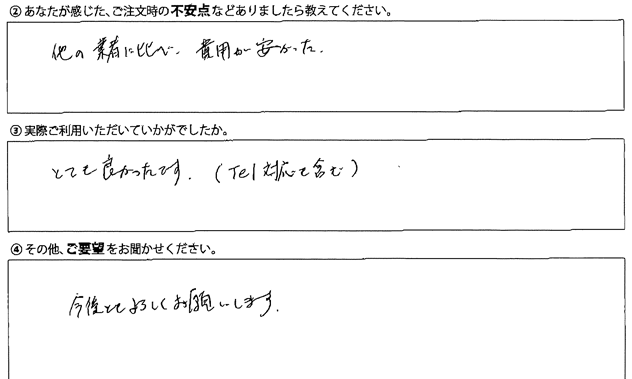 ②あなたが感じた、ご注文時の不安点などありましたら教えてください。
他の業者に比べ、費用が安かった。
③実際ご利用いただいていかがでしたか。
とても良かったです。(Tel対応も含む)
④その他、ご要望をお聞かせください。
今後ともよろしくお願いします。